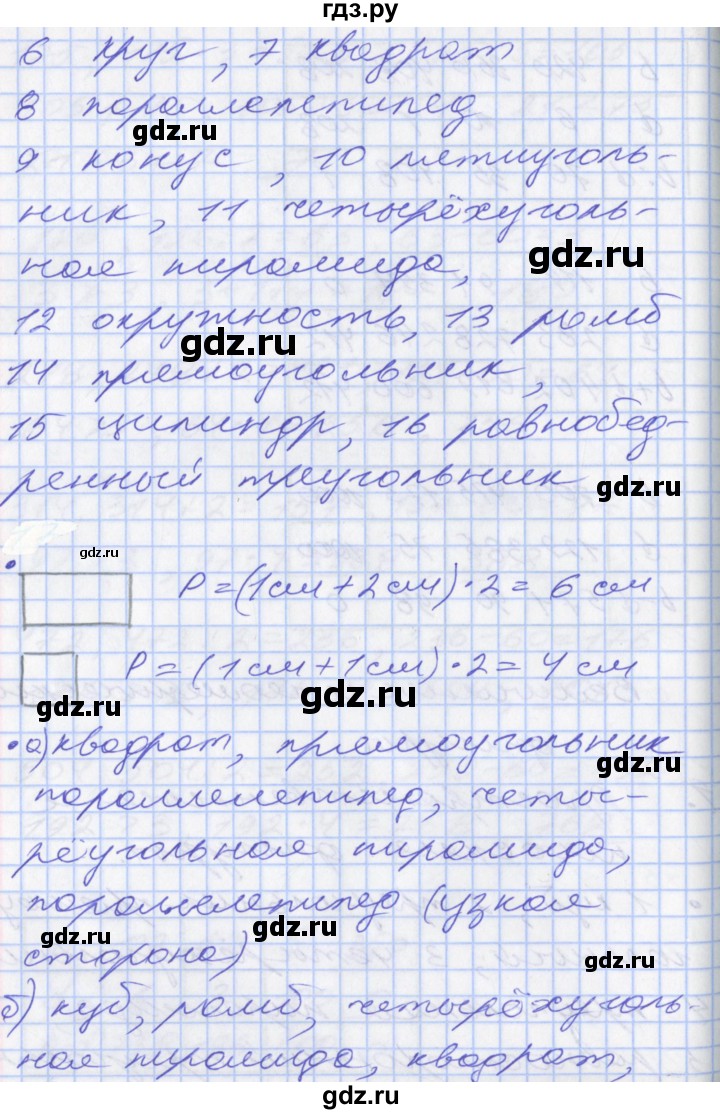 гдз.ру
6 круг, 7 квадрат
8 пораллепепипед
gdz.ru
9 конус, 10 пятиуголь-
ник, 11 четырёхуголь-
gdz.ru
ная пирамида,
12 окружность, 13 ромб
gdz.ru
14 прямоугольник,
15 цилиндр, 16 равнобед-
ренный треугольник
gdz.ru
gdz.ru
P = (1см + 2см) · 2 = 6 см
P = (1см + 1см) · 2 = 4 см
gdz.ru
gdz.ru
• а) квадрат, прямоугольник
gdz.ru
параллелепипед, четы-
рёугольная пирамида,
gdz.ru
параллелепипед (узкая
gdz.ru
gdz.ru
сторона)
gdz.ru
б) куб, ромб, четырёхуголь-
ная пирамида, квадрат,
gdz.ru
gdz.ru
gdz.ru